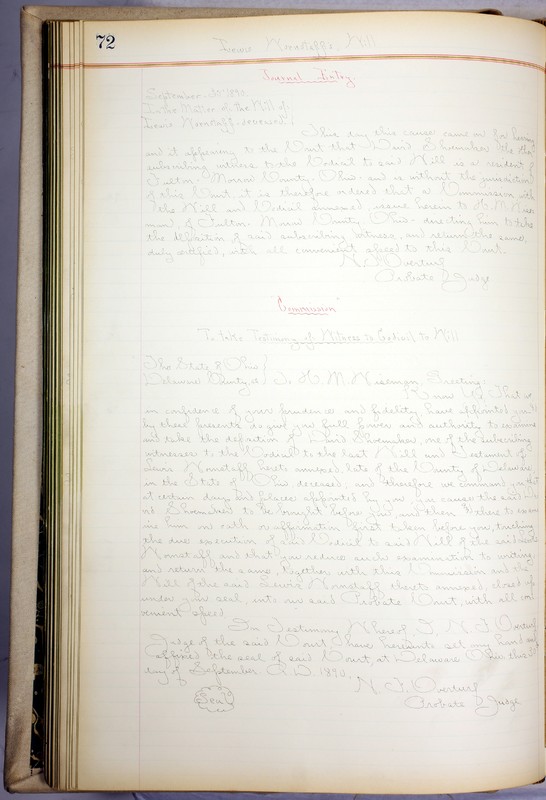 72
Lewis Monstaff's Will
Journal Entry
September 30th 1890.
In the Matter of the Will of
Lewis Monstaff deceased
This day this cause came on for hearing
and it appearing to the Court that David Shoemaker the other
subscribing witness to the Codicil to said Will is a resident of
Fulton Morrow County, Ohio and is without the jurisdiction
of this Court it is therefore ordered that a Commission with
the Will and Codicil annexed issue herein to H. M. Wise-
man, of Fulton Morrow County Ohio directing him to take
the deposition of said subscribing witness, and return the same,
duly certified, with all convenient speed to this Court.
N. F. Overturf
Probate Judge
"Commission"
To take Testimony of Witness to Codicil to Will
The State of Ohio
Delaware County, ss To H. M. Wiseman, Greeting:
Know Ye, That we
in confidence of your prudence and fidelity, have appointed you &
by these presents do give you full power and authority to examine
and take the deposition of David Shoemaker, one of the subscribing
witnesses to the Codicil to the last Will and Testament of
Lewis Monstaff hereto annexed, late of the County of Delaware
in the State of Ohio, deceased; and therefore we command you that
at certain days and places appointed by you, you cause the said
Shoemaker to be brought before you, and then & there to exam-
ine him on oath or affirmation first taken before you, touching
the due execution of said Codicil to said Will of the said Lewis
Monstaff and that you reduce such examination to writing
and return the same, together with this Commission and the
Will of the said Lewis Monstaff thereto annexed, closed up
under your seal, into our said Probate Court, with all con-
venient speed
In Testimony Whereof, I, N. F. Overturf
Judge of the said Court, have hereunto set my hand and
affixed the seal of said Court, at Delaware Ohio, this
day of September A. D. 1890.
N. F. Overturf
Seal
Probate Judge